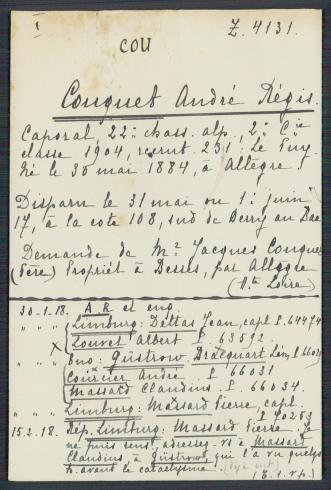 I
COU
Z. 4131.
Couquet André Régis.
Caporal, 22e chass. alp., 2e Cie
classe 1904, recrut. 231: Le Puy
Né le 30 mai 1884, à Allègre.
Disparu le 31 mai ou 1: juin
17, à la cote 108, sud de Berry au Bac
Demande de Mr Jacques Couquet
(Père) Propriét à Desses, par Allègre
(Hte Loire)
30.1.18. A.R et enq.
" " " Limburg: Deltas Jean, capl P. 64474
X Louvet Albert P. 63592.
" " " Güstrow: Bracquart Léon, P. 66024
Courrier André P. 66031
Massard Claudius P. 66034.
" " " Limburg: Massard Pierre, capt.
15.2.18. Rép. Limburg: Massard Pierre. Je
ne puis rens, adressez-vs à Massard
Claudius, à Güstrow qui l'a vu quelques
h. avant le cataclysme.
(E.1.v.p.)